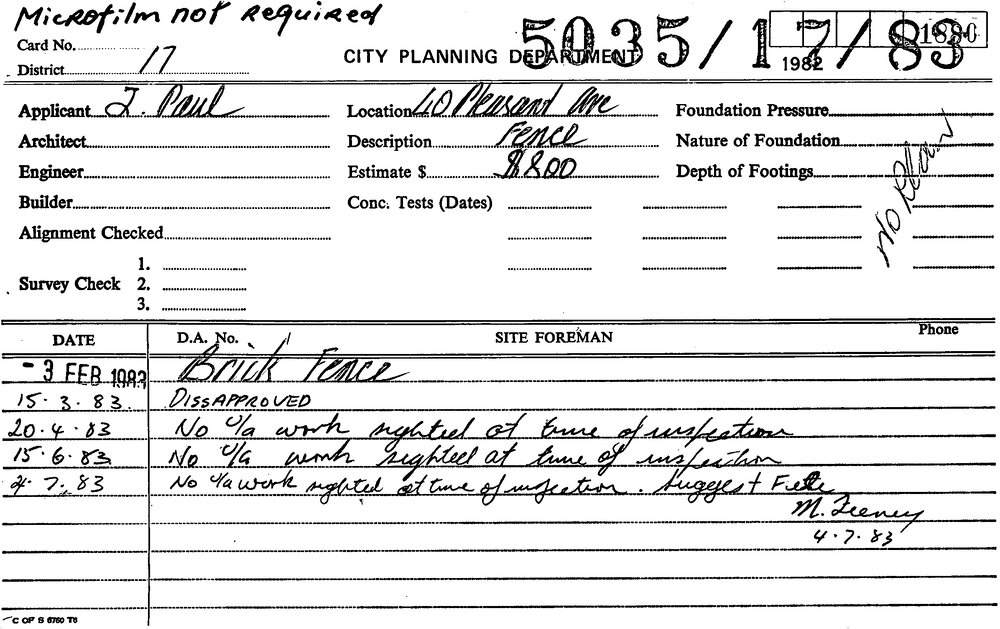 Microfilm not required
5035/17/83
1880
1982
Card No.
District 17
CITY PLANNING DEPARTMENT
Applicant J. Paul
Location 40 Pleasant Ave
Foundation Pressure
Architect
Description Fence
Nature of Foundation
Engineer
Estimate $ $800
Depth of Footings
Builder
Conc. Tests (Dates)
No Plan
Alignment Checked
Survey Check 1.
2.
3.
DATE D.A. No. SITE FOREMAN Phone
-3 FEB 1983 Brick Fence
15.3.83. DISSAPPROVED
20.4.83 No U/a work sighted at time of inspection
15.6.83 No U/a work sighted at time of inspection
4.7.83 No U/a work sighted at time of inspection. Suggest File
M. Feeney
4.7.83
C OF S 6760 T6